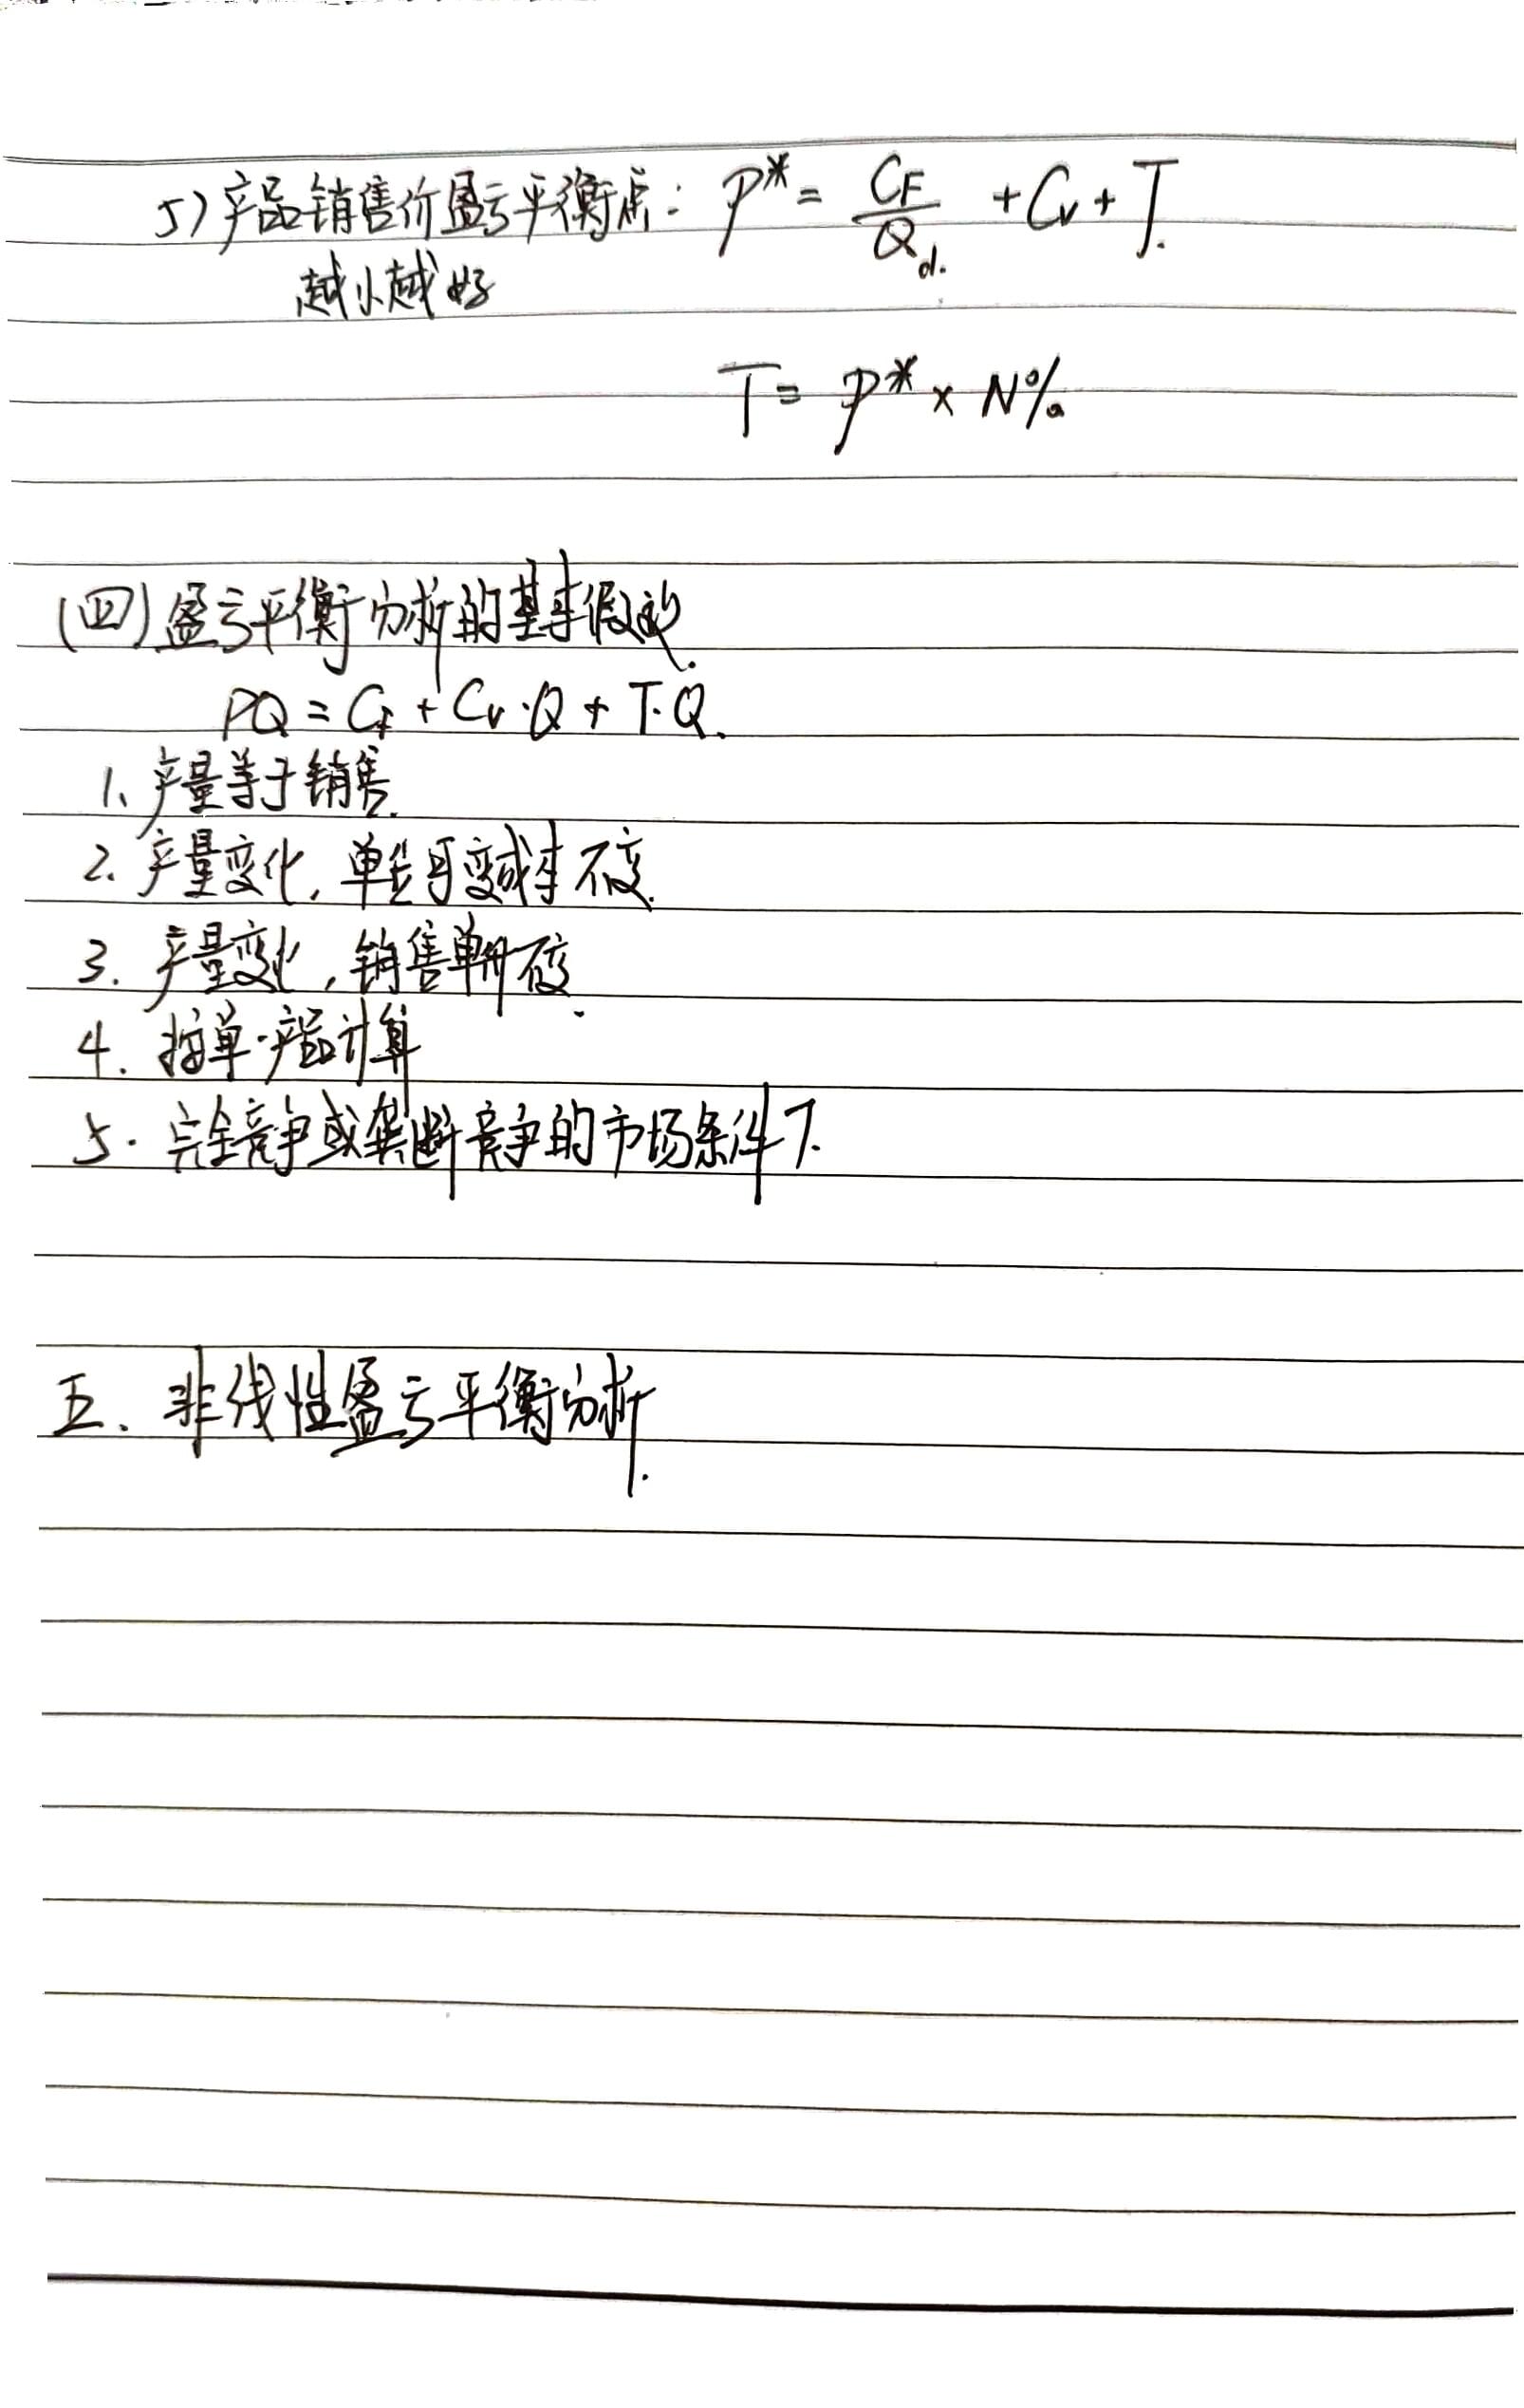 5) 产品销售价盈亏平衡点: P* = CF/Qd. + Cv + T.
越小越好
T = P* × N%
(四) 盈亏平衡分析的基本假设.
PQ = CF + Cv·Q + T·Q.
1、产量等于销售.
2. 产量变化, 单位可变成本不变.
3. 产量变化, 销售单价不变.
4. 按单一产品计算
5. 完全竞争或垄断竞争的市场条件下.
五、非线性盈亏平衡分析.